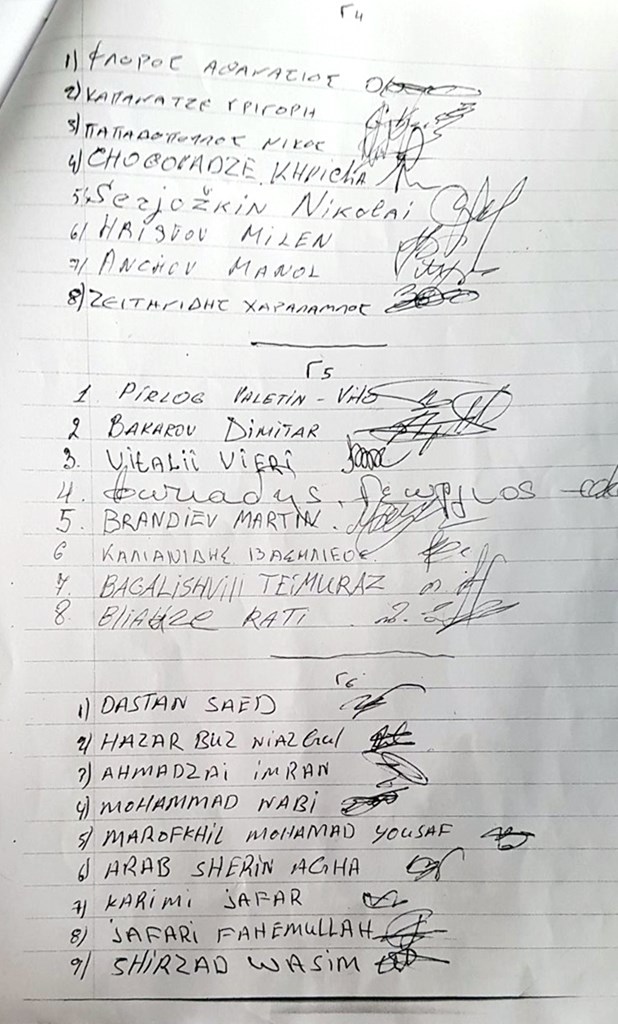 Γ4
1) ΦΛΟΡΟΣ ΑΘΑΝΑΣΙΟΣ
2) ΚΑΠΑΝΑΤΖΕ ΓΡΙΓΟΡΗ
3) ΠΑΠΑΔΟΠΟΥΛΟΣ ΝΙΚΟΣ
4) CHOGOVADZE
5) Serjožkin Nikolai
6) HRISTOV MILEN
7) ANCHOV MANOL
8) ΖΕΙΤΗΡΙΔΗΣ ΧΑΡΑΛΑΜΠΟΣ
Γ5
1 PIRLOG VALETIN -
2 BAKAROV DIMITAR
3. VitALii ViERi
4.
5. BRANDIEV MARTIN.
6 ΚΑΛΙΑΝΙΔΗΣ ΒΑΣΗΛΙΕΟΣ
7. BAGALISHVIlI TEIMURAZ
8. RATI
Γ6
1) DASTAN SAED
2) HAZAR BUZ NiAZ GUl
3) AHMADZAi iMRAN
4) MOHAMMAD NABi
5) MAROFKHiL MOHAMAD YOUSAF
6) ARAB SHERiN AGHA
7) KARiMi JAFAR
8) JAFARi FAHEMULLAH
9) SHiRZAD WASiM